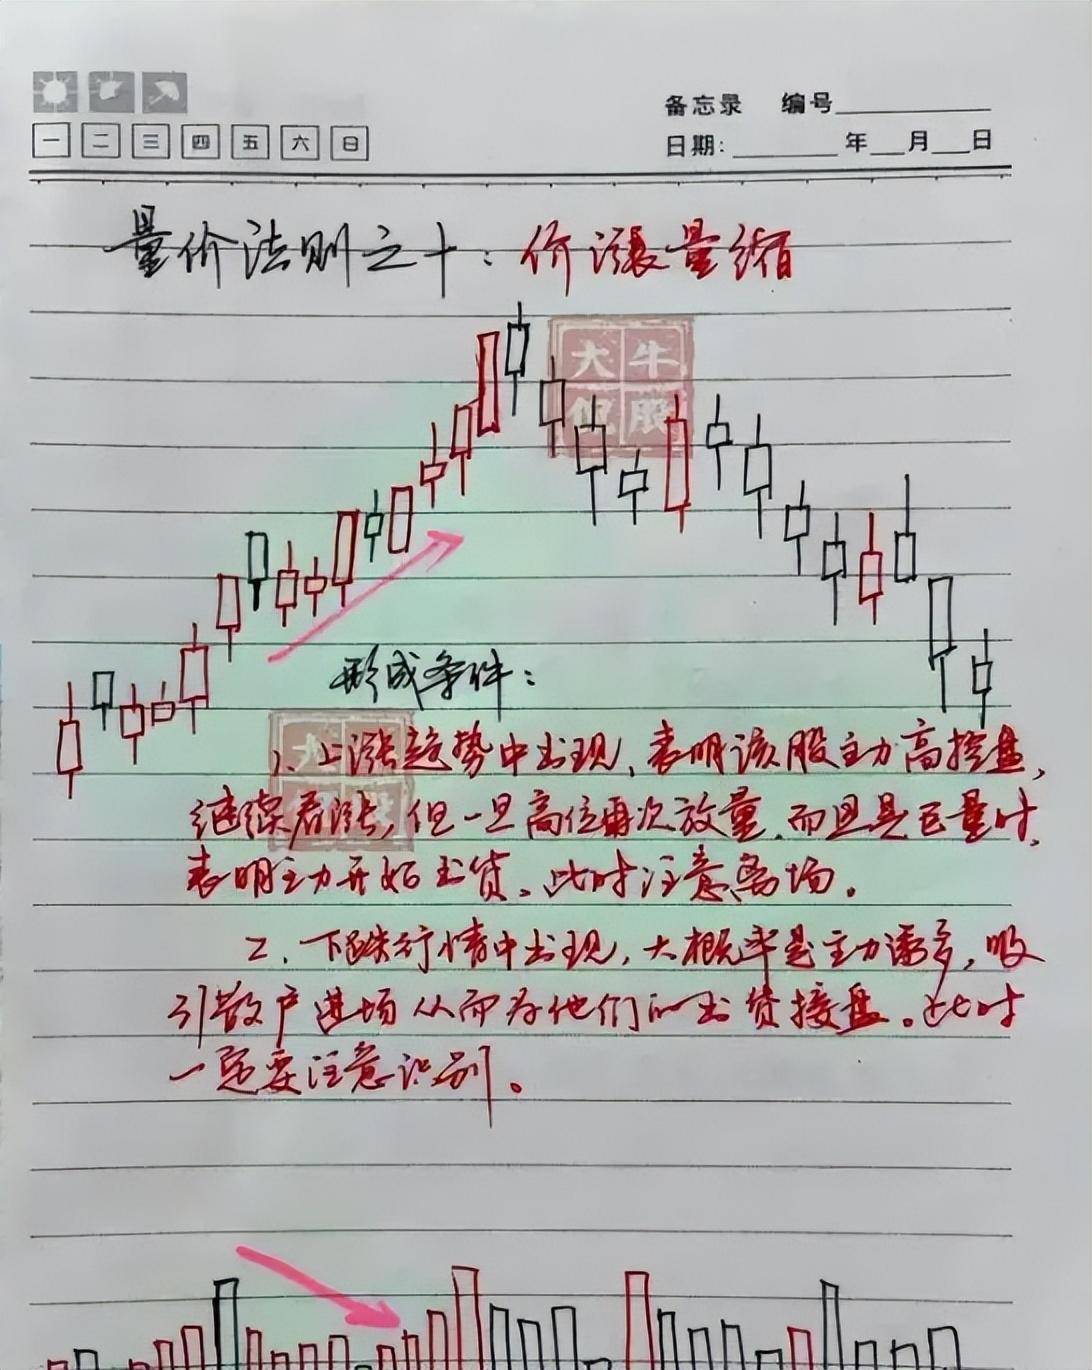 备忘录 编号
一 二 三 四 五 六 日
日期: 年 月 日
量价法则之十：价涨量缩
大牛
股
形成条件：
1、上涨趋势中出现，表明该股主力高控盘，
继续看涨，但一旦高位再次放量，而且是巨量时，
表明主力开始出货，此时注意离场。
2、下跌行情中出现，大概率是主力诱多，吸
引散户进场从而为他们的出货接盘。此时
一定要注意识别。